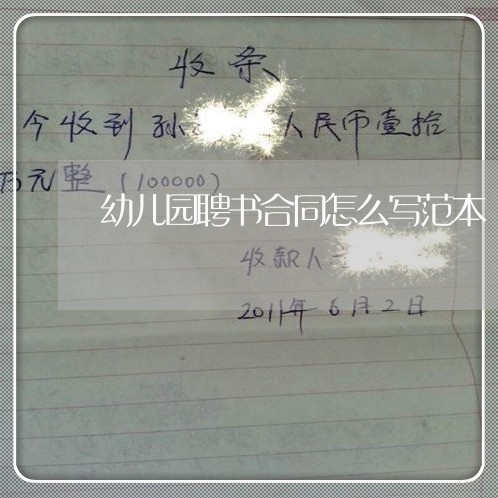 收条
今收到孙 人民币壹拾
万元整(100000)
幼儿园聘书合同怎么写范本
收款人
2011年6月2日